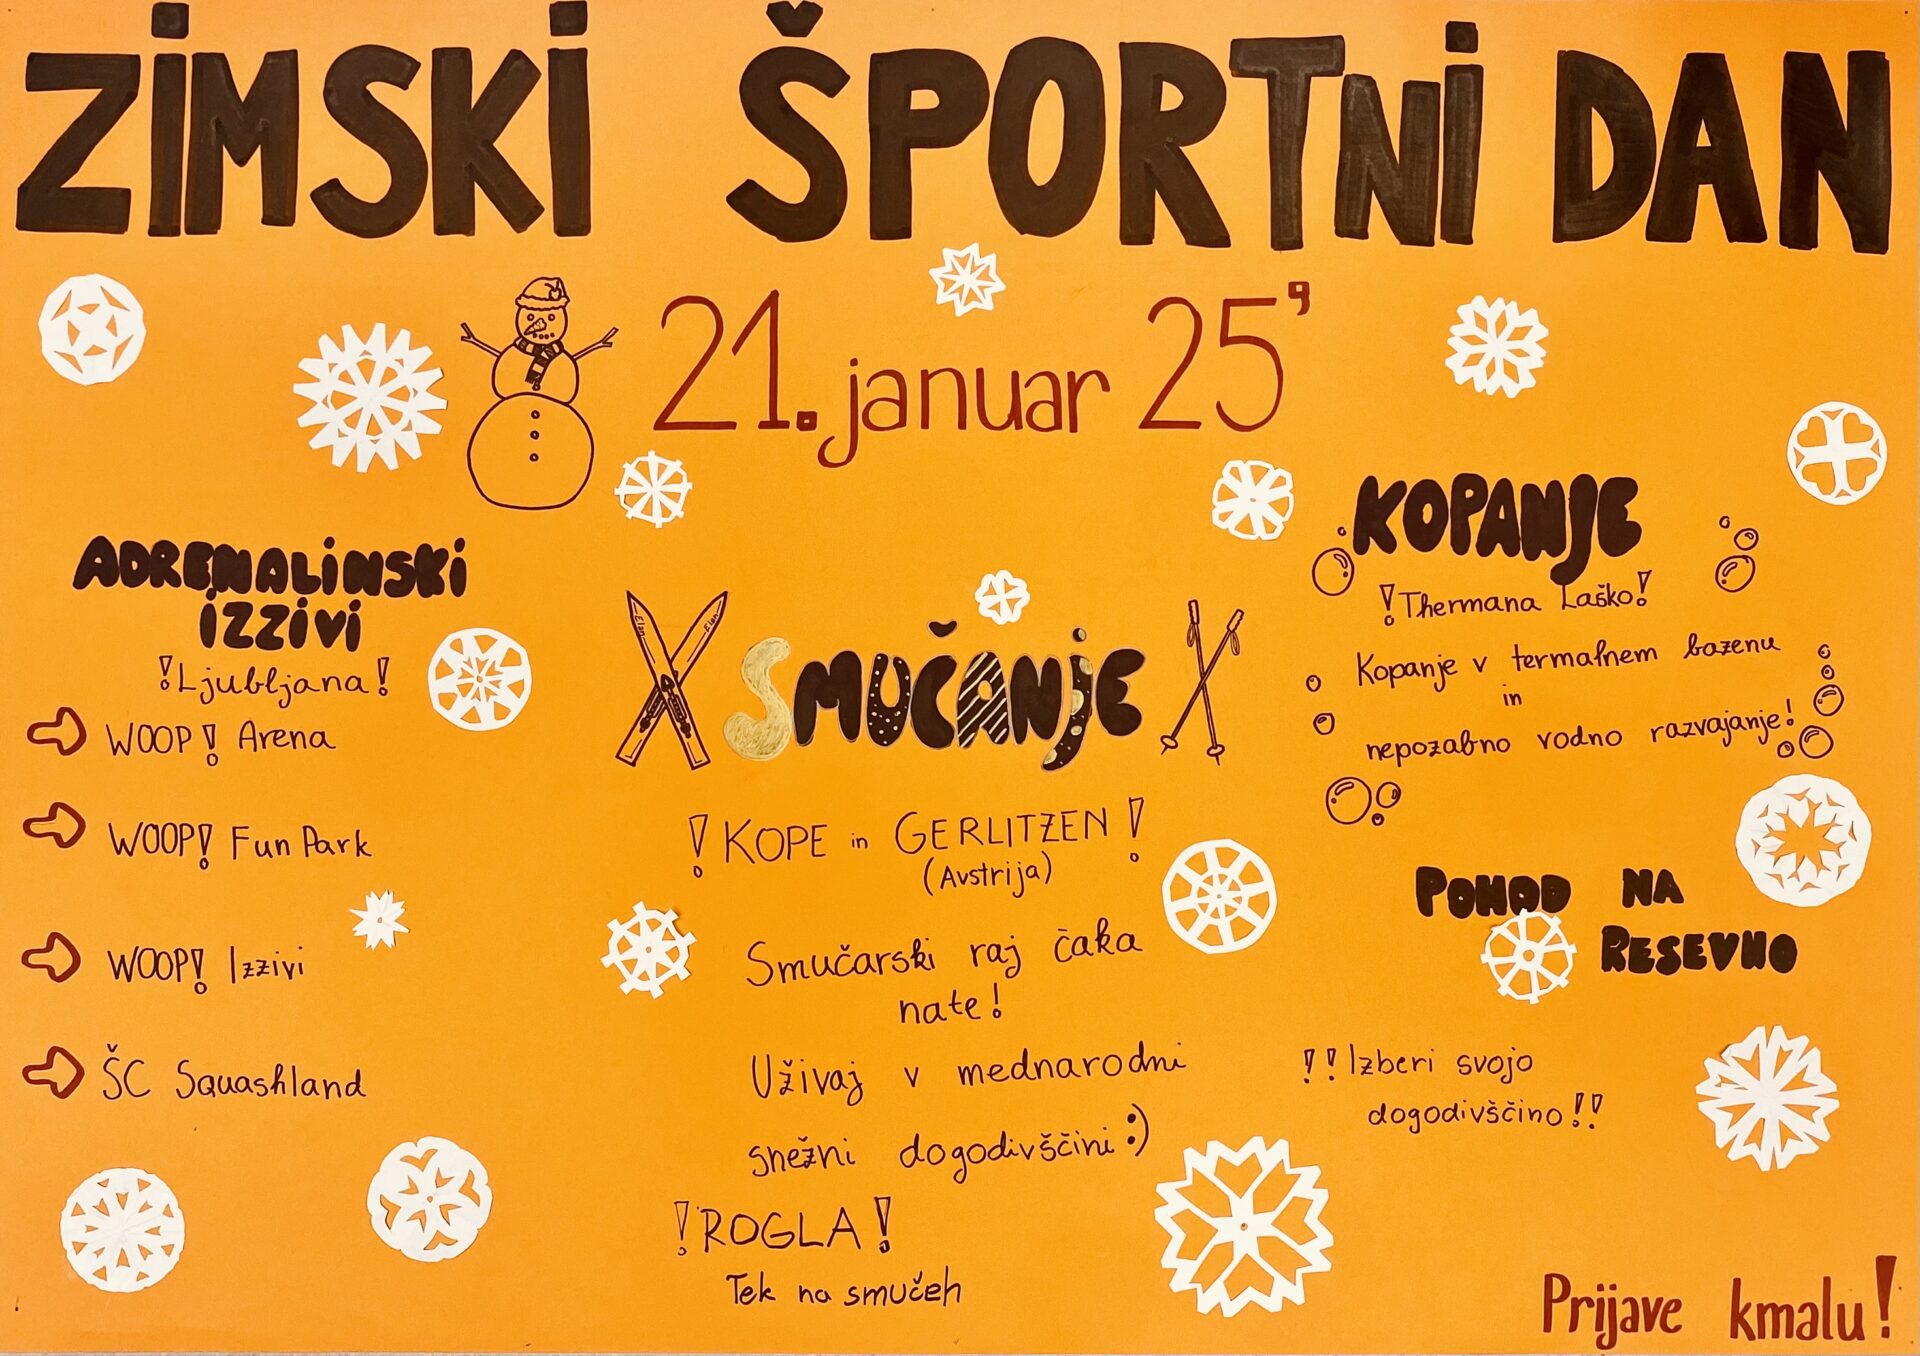 ZIMSKI ŠPORTNI DAN
21. januar 25'
ADRENALINSKI
IZZIVI
!Ljubljana!
WOOP! Arena
WOOP! Fun Park
WOOP! Izzivi
ŠC Squashland
Elan Elan
SMUČANJE
!KOPE in GERLITZEN!
(Avstrija)
Smučarski raj čaka
nate!
Uživaj v mednarodni
snežni dogodivščini :)
!ROGLA!
Tek na smučeh
KOPANJE
!Thermana Laško!
Kopanje v termalnem bazenu
in
nepozabno vodno razvajanje!
POHOD NA
RESEVNO
!!Izberi svojo
dogodivščino!!
Prijave kmalu!